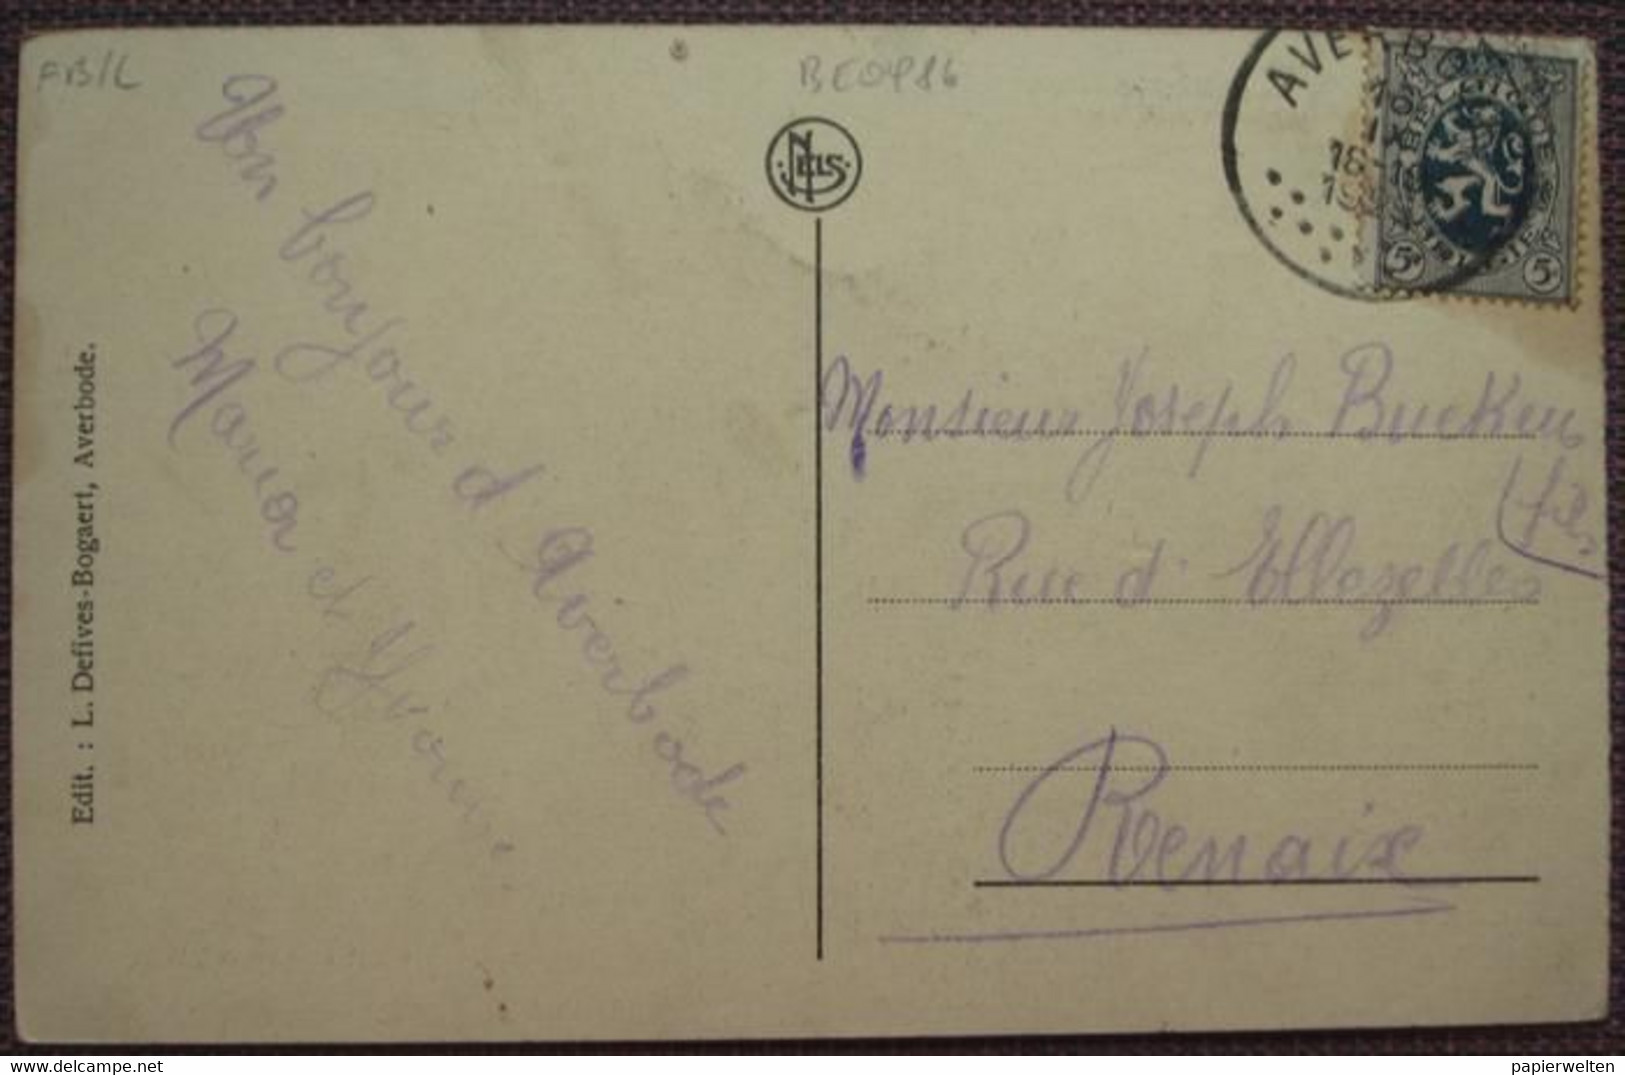 FB/L
BE0986
NELS
AVERBODE
BELGIQUE
BELGIE
5c 5c
Un bonjour d'Averbode
Maria et Yvonne
Edit. : L. Defives-Bogaert, Averbode.
Monsieur Joseph
(fils
Rue d'Ellezelles
Renaix
www.delcampe.net
papierwelten